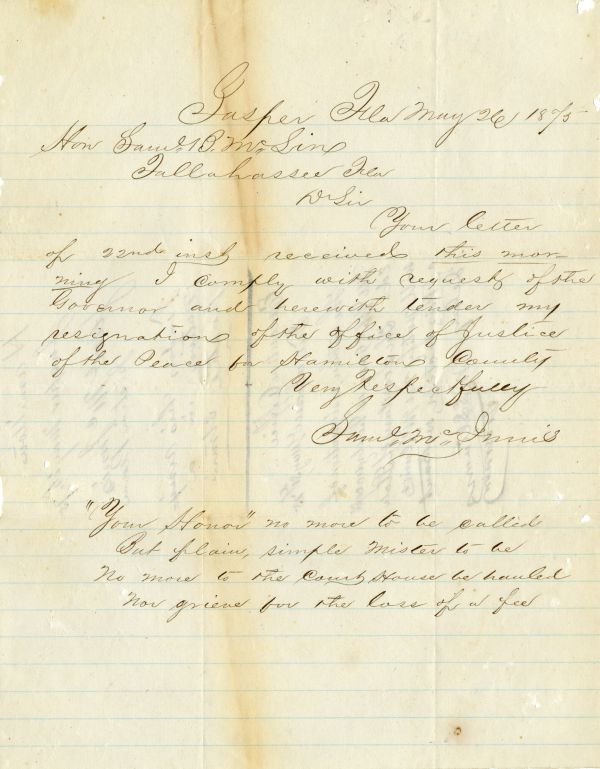 Jasper Fla May 26 1875
Hon Saml. B. McLin
Tallahassee Fla
Dr Sir
Your letter
of 22nd inst received this mor-
ning I comply with request of the
Governor and herewith tender my
resignation of the office of Justice
of the Peace for Hamilton County
Very Respectfully
Saml. McInnis
"Your Honor" no more to be called
But plain, simple Mister to be
No more to the Court House be hauled
Nor grieve for the loss of a fee